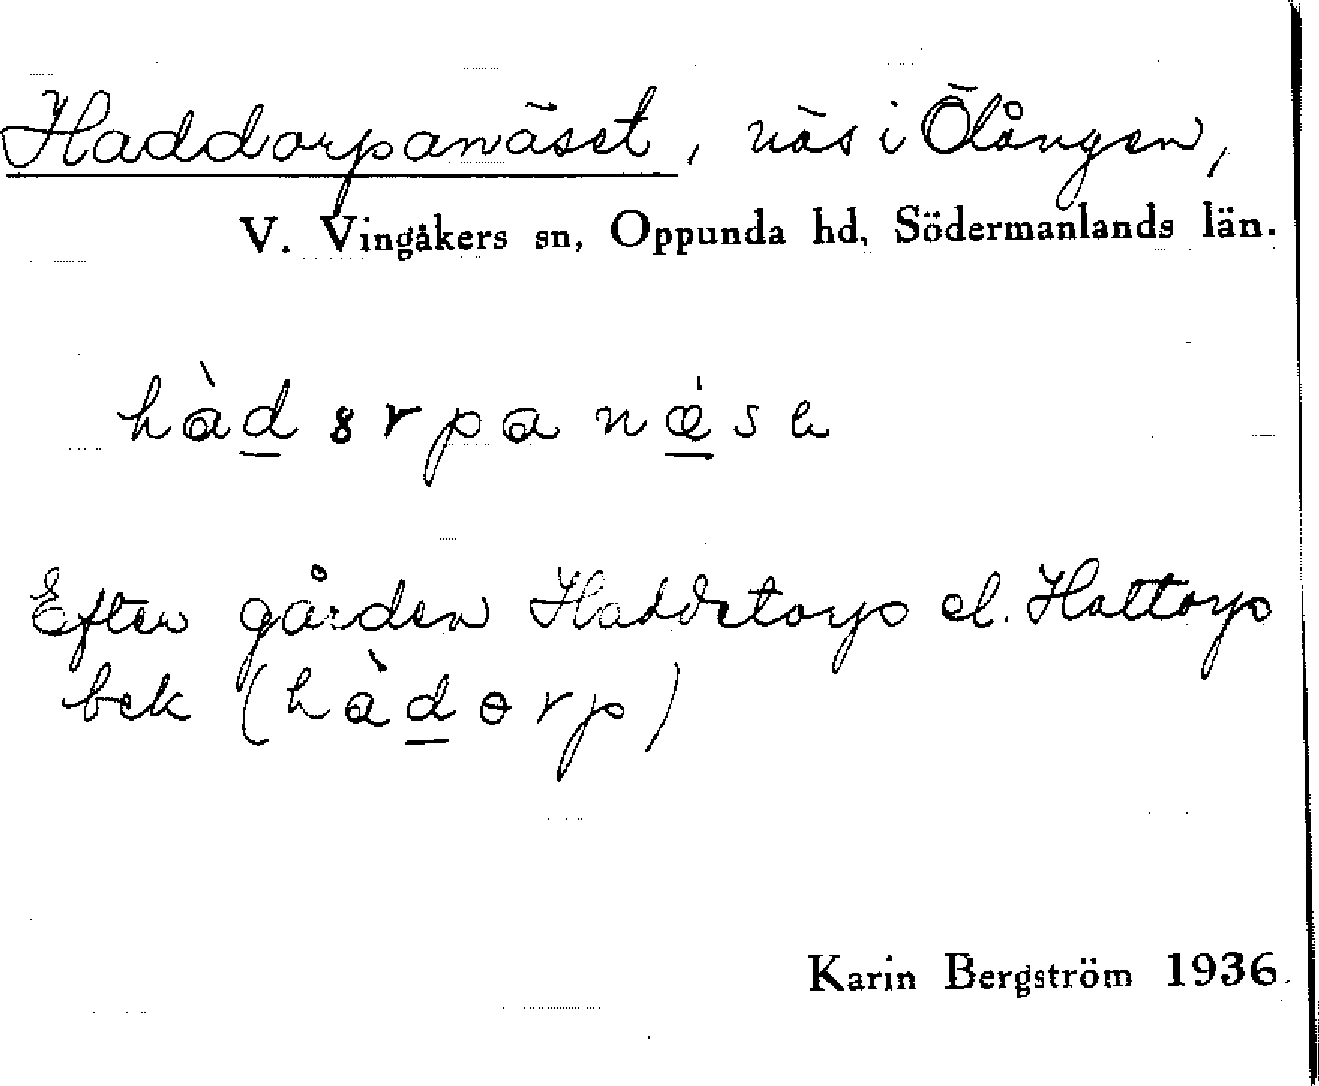 Haddorpanäset, näs i Ölången,
V. Vingåkers sn, Oppunda hd, Södermanlands län.
hàd̲ərpanæ̲̀sə
Efter gården Haddetorp el. Hattorp
bek (hàd̲ɵrp)
Karin Bergström 1936